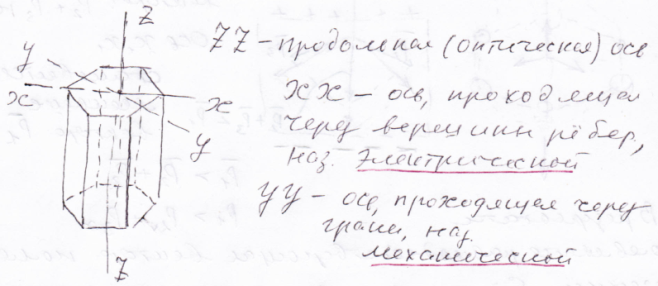 Z
y
ZZ - продольная (оптическая) ось
x
x
xx - ось, проходящая
через вершины рёбер,
y
наз. электрической
yy - ось, проходящая через
грани, наз.
механической
Z